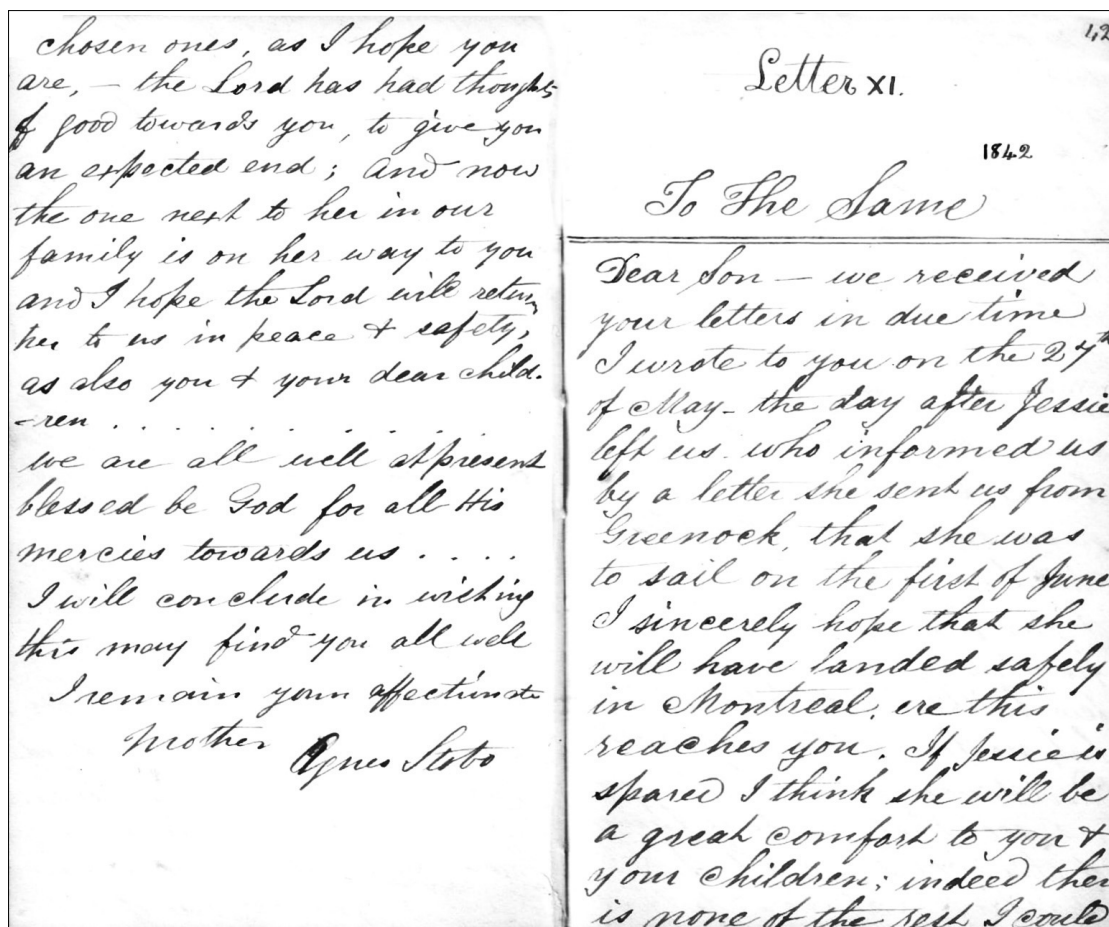 chosen ones, as I hope you
are, — the Lord has had thoughts
of good towards you, to give you
an expected end; and now
the one next to her in our
family is on her way to you
and I hope the Lord will return
her to us in peace & safety,
as also you & your dear child-
-ren . . . . . . . .
we are all well at present
blessed be God for all His
mercies towards us . . . .
I will conclude in wishing
this may find you all well
I remain your affectionate
Mother
Agnes Stobo
42
Letter XI.
1842
To The Same
Dear Son — we received
your letters in due time
I wrote to you on the 27th
of May - the day after Jessie
left us. who informed us
by a letter she sent us from
Greenock, that she was
to sail on the first of June
I sincerely hope that she
will have landed safely
in Montreal. ere this
reaches you. If Jessie is
spared I think she will be
a great comfort to you &
your children; indeed ther
is none of the rest I could